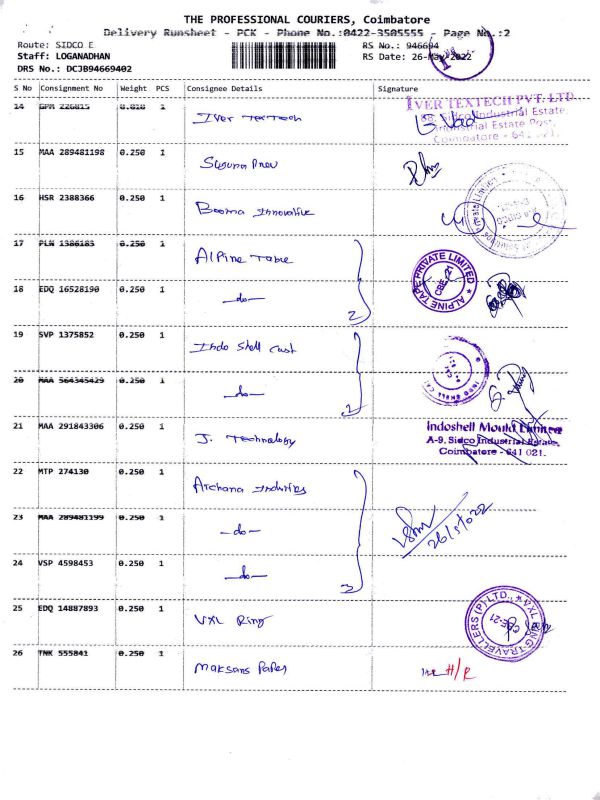 THE PROFESSIONAL COURIERS, Coimbatore
Delivery Runsheet - PCK - Phone No.:0422-3505555 - Page No.:2
Route: SIDCO E
RS No.: 946694
Staff: LOGANADHAN
RS Date: 26-May-2022
DRS No.: DCJB94669402
S No Consignment No Weight PCS Consignee Details Signature
14 GPM 226815 0.810 1 Iver TexTech
IVER TEXTECH PVT. LTD
68, Sidco Industrial Estate
Industrial Estate Post,
Coimbatore - 641 021.
15 MAA 289481198 0.250 1
16 HSR 2388366 0.250 1 Booma Innovative
17 PLN 1386183 0.250 1 Alpine Tape
ALPINE TAPE PRIVATE LIMITED
CBE-21
18 EDQ 16528190 0.250 1 -do-
2
19 SVP 1375852 0.250 1 Indo Shell Cast
20 MAA 564345429 0.250 1 -do-
2
21 MAA 291843306 0.250 1 J. Technology
Indoshell Mould Limited
A-9, Sidco Industrial Estate,
Coimbatore - 641 021.
22 MTP 274130 0.250 1 Archana Industries
23 MAA 289481199 0.250 1 -do-
26/5/2022
24 VSP 4598453 0.250 1 -do-
3
25 EDQ 14887893 0.250 1 VXL Ring
VXL RING TRAVELLERS (P) LTD.
CBE-21
26 TNK 555841 0.250 1 Maksans Paper
H/R